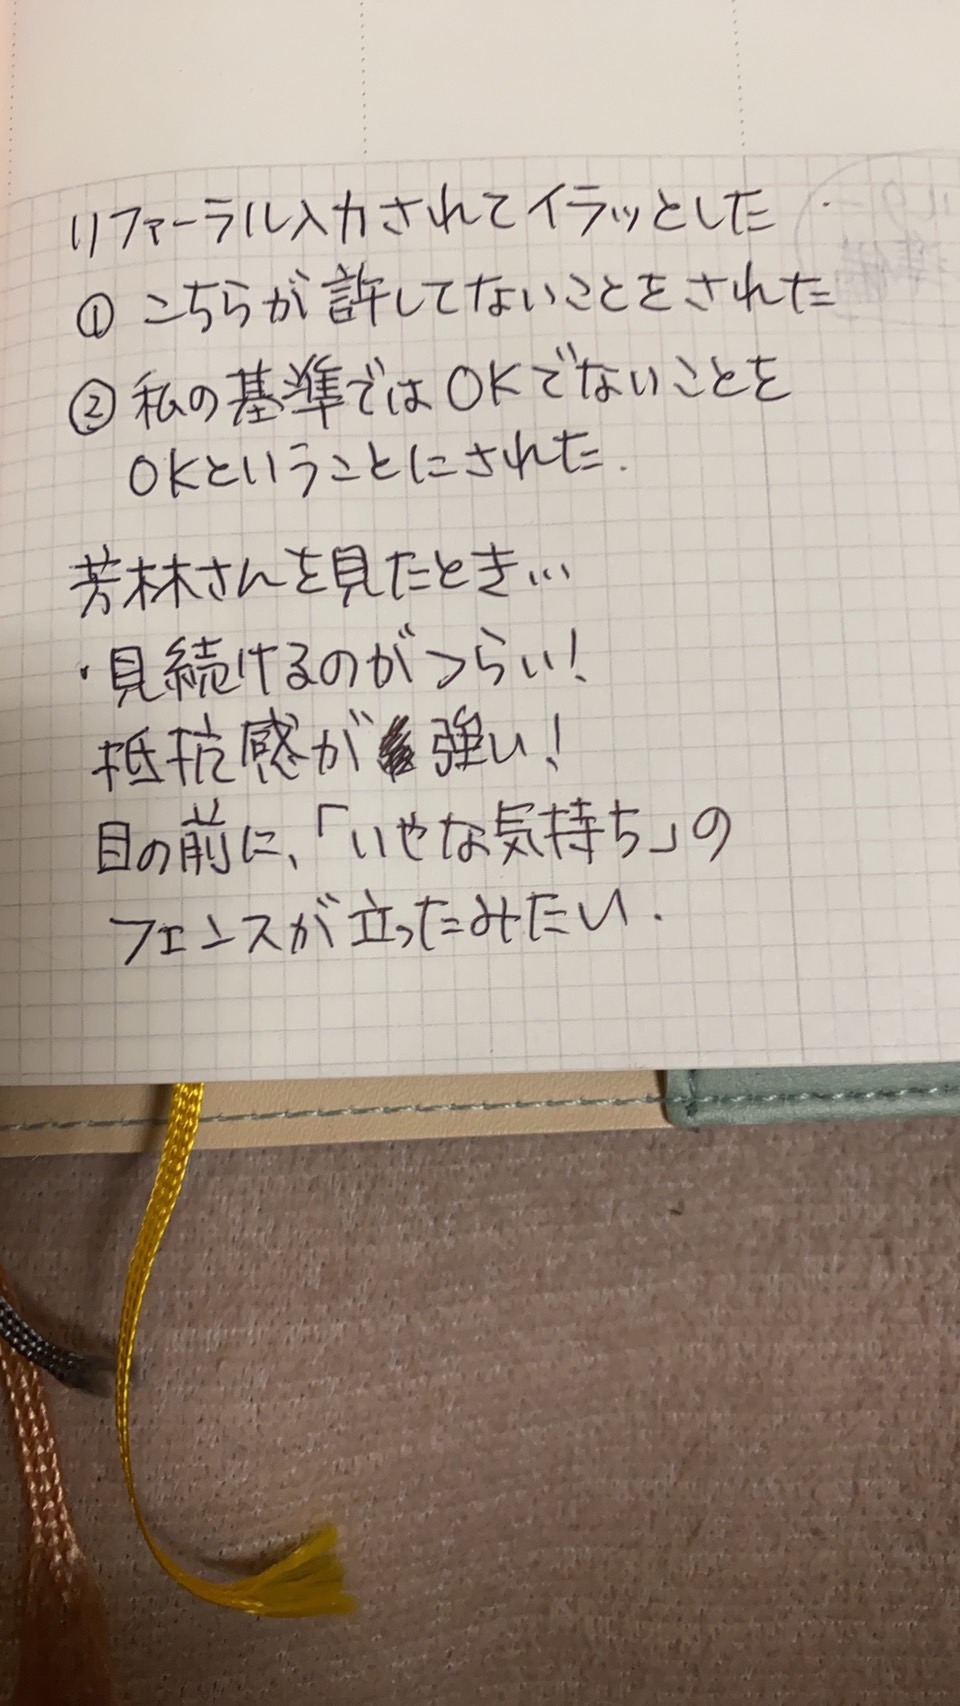 リファーラル入力されてイラッとした
① こちらが許してないことをされた
② 私の基準ではOKでないことを
OKということにされた.
芳林さんを見たとき...
・見続けるのがつらい!
抵抗感が強い!
目の前に、「いやな気持ち」の
フェンスが立ったみたい.